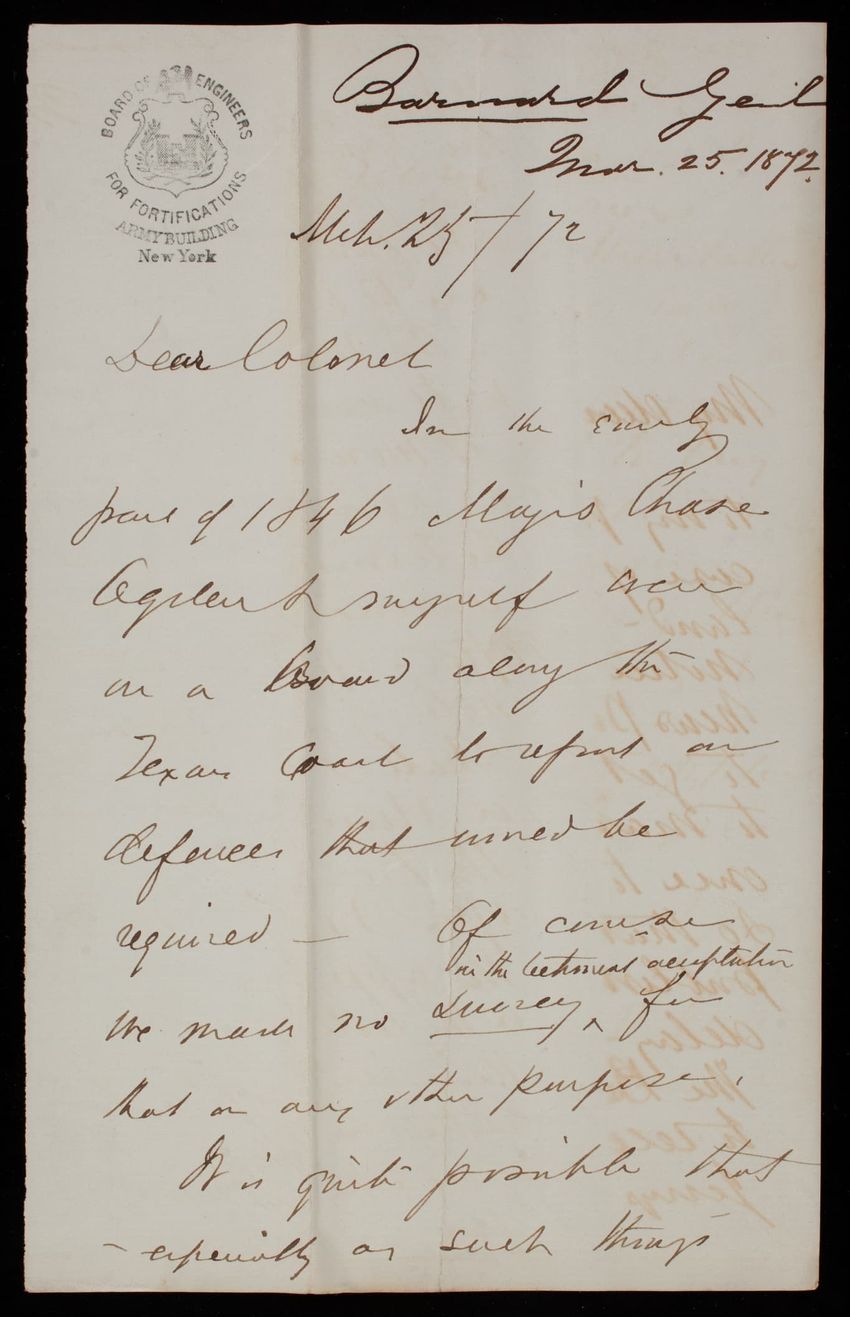 BOARD OF ENGINEERS
FOR FORTIFICATIONS
ARMY BUILDING
New York
Barnard Genl
Mar. 25. 1872.
Mch. 25/72
Dear Colonel
In the early
part of 1846 Majrs Chase
Ogden & myself were
on a Board along the
Texan Coast to report on
defences that would be
required — Of course
in the technical acceptation
we made no survey ^ for
that or any other purpose.
It is quite possible that
- especially as such things